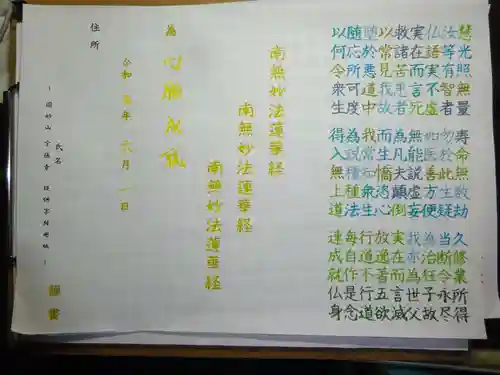 慧光照無量 寿命無数劫 久修業所得
汝等有智者 勿於此生疑 当断令永尽
仏語実不虚 如医善方便 為治狂子故
実在而言死 無能説虚妄 我亦為世父
救諸苦患者 為凡夫顛倒 実在而言滅
以常見我故 而生憍恣心 放逸著五欲
堕於悪道中 我常知衆生 行道不行道
随応所可度 為説種種法 毎自作是念
以何令衆生 得入無上道 速成就仏身
南無妙法蓮華経
南無妙法蓮華経
南無妙法蓮華経
為 心願成就
令和 年 六月 一日
住所
氏名
謹書